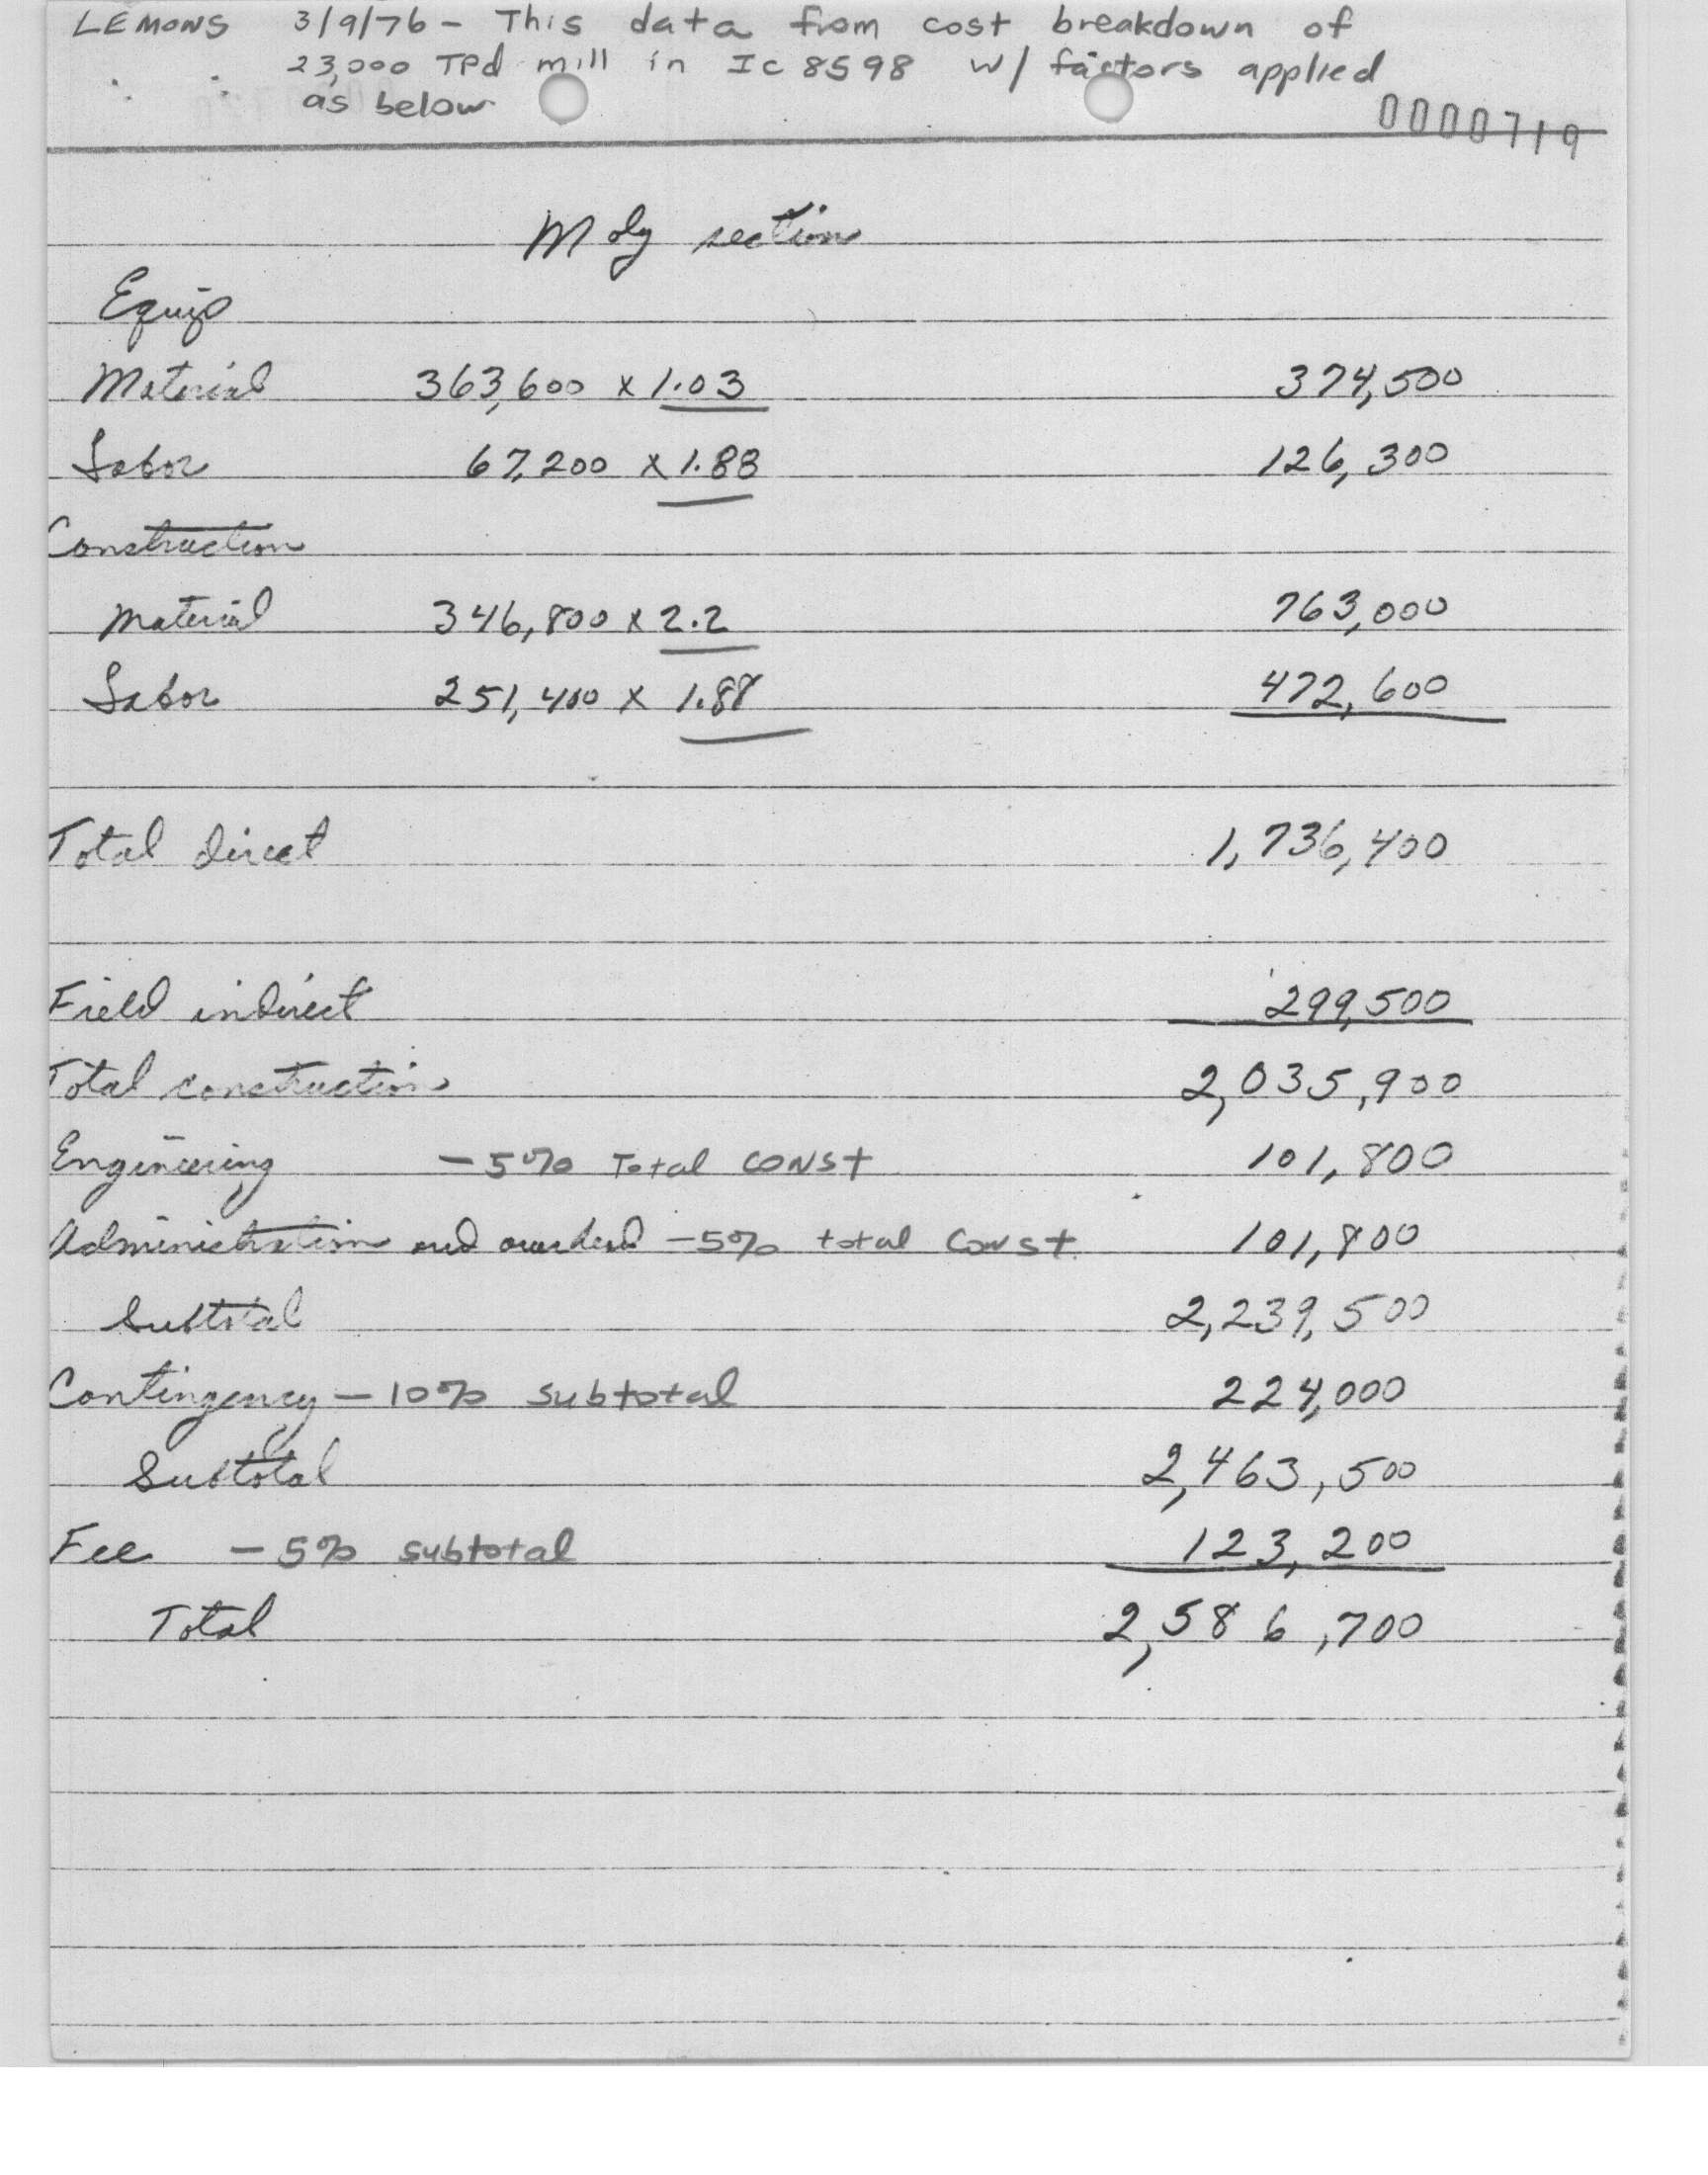 LEMONS 3/9/76 - This data from cost breakdown of
23,000 TPd mill in Ic 8598 w/ factors applied
as below
0000719
Moly section
Equip
Material 363,600 x 1.03 374,500
Labor 67,200 x 1.88 126,300
Construction
Material 346,800 x 2.2 763,000
Labor 251,400 x 1.88 472,600
Total direct 1,736,400
Field indirect 299,500
Total construction 2,035,900
Engineering - 5% Total CONST 101,800
Administration and overhead - 5% total Const. 101,800
Subtotal 2,239,500
Contingency - 10% subtotal 224,000
Subtotal 2,463,500
Fee - 5% subtotal 123,200
Total 2,586,700